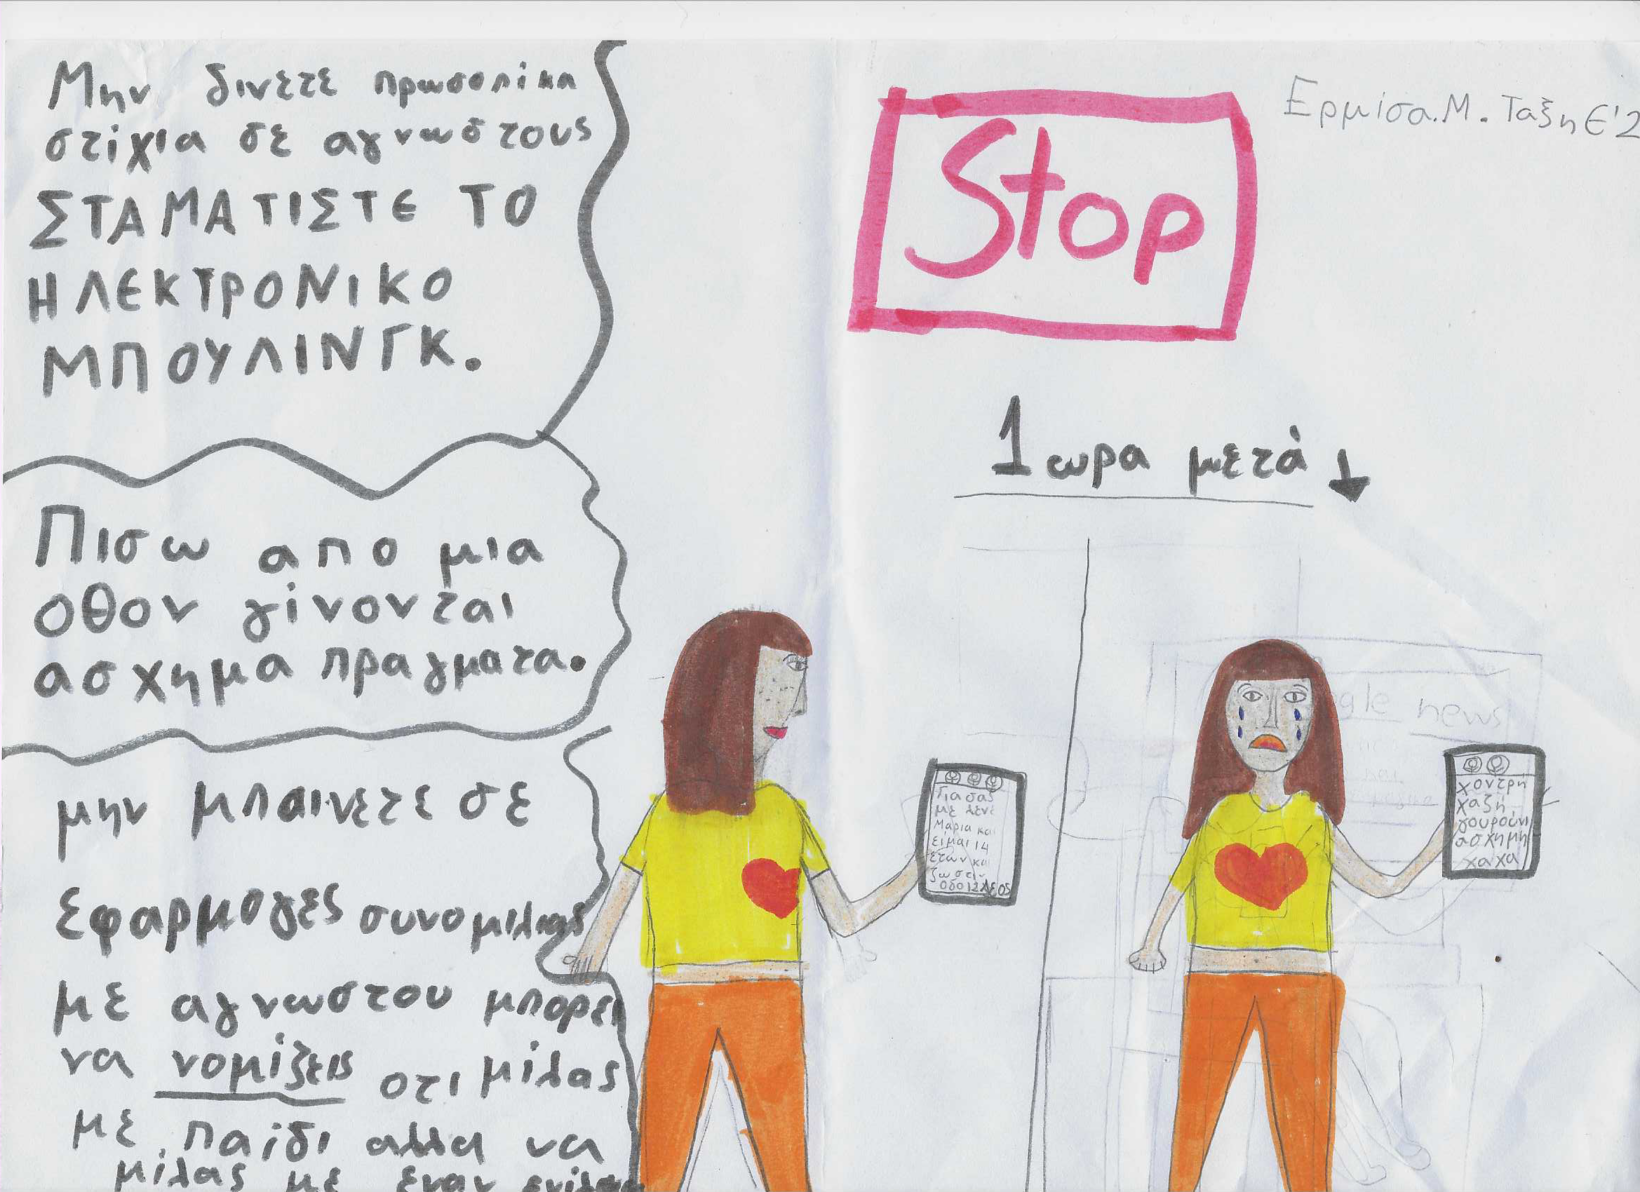 Μην δινετε πρωσοπικα
στίχια σε αγνωστους
ΣΤΑΜΑΤΙΣΤΕ ΤΟ
ΗΛΕΚΤΡΟΝΙΚΟ
ΜΠΟΥΛΙΝΓΚ.
Πισω απο μια
οθον γίνονται
ασχημα πραγματα.
μην μπαινετε σε
εφαρμογες συνομιλιας
με αγνωστου μπορει
να νομίζεις οτι μίλας
με παίδι αλλα να
μίλας με έναν
Stop
Ερμίσα.Μ. Ταξη Ε'2
1 ωρα μετά
Γιασας
με λενε
Μάρια και
είμαι 14
ετών κι
ζω στιν
gle news
χοντρή
χαζή
γουρούνι
ασχημη
χαχα